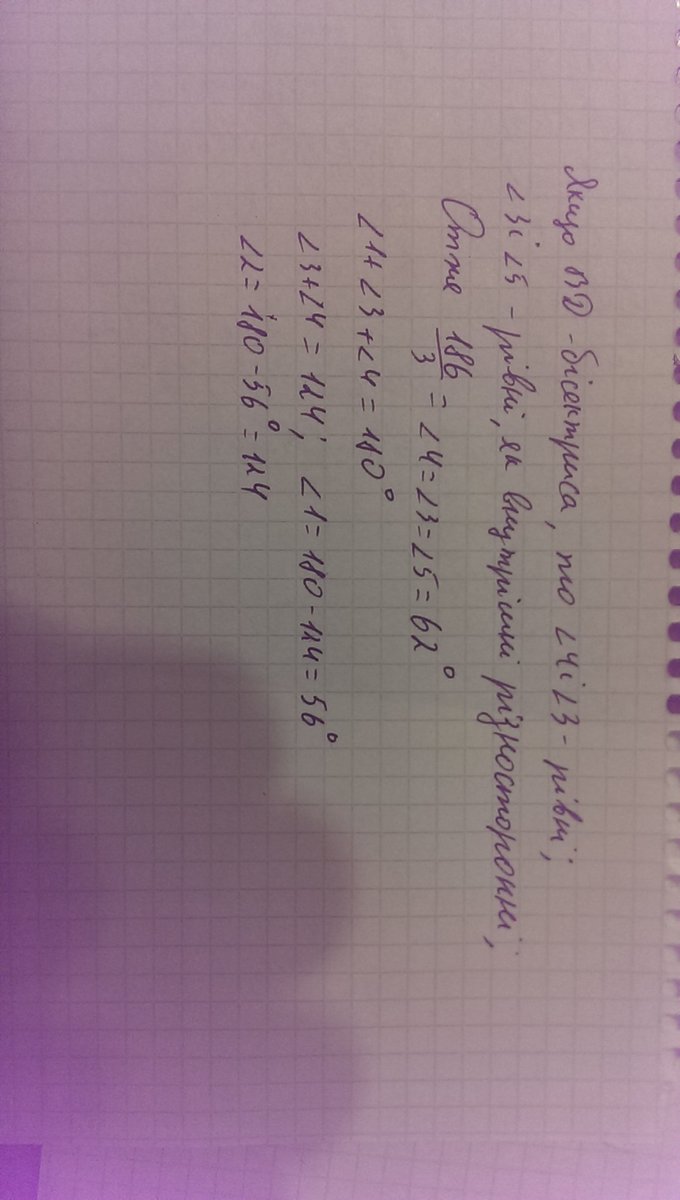 Якщо BD - бісектриса, то ∠4 і ∠3 - рівні;
∠3 і ∠5 - рівні, як внутрішні різносторонні;
Отже 186/3 = ∠4 = ∠3 = ∠5 = 62°
∠1 + ∠3 + ∠4 = 180°
∠3 + ∠4 = 124; ∠1 = 180 - 124 = 56°
∠2 = 180 - 56° = 124